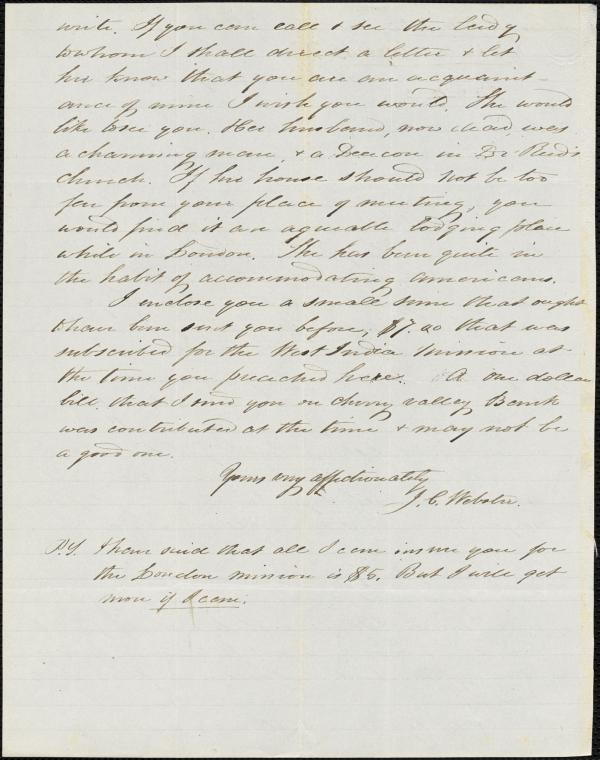 write. If you can call & see the lady
to whom I shall direct a letter & let
her know that you are an acquaint-
ance of mine I wish you would. She would
like to see you. Her husband, now dead, was
a charming man, & a Deacon in Dr. Reed's
church. If her house should not be too
far from your place of meeting, you
would find it an agreeable lodging place
while in London. She has been quite in
the habit of accommodating Americans.
I enclose you a small sum that ought
to have been sent you before, $7.00 that was
subscribed for the West India Mission at
the time you preached here. A one dollar
bill that I send you on Cherry Valley Bank
was contributed at the time & may not be
a good one.
Yours very affectionately
J. C. Webster.
P.S. I have said that all I can insure you for
the London mission is $5. But I will get
more if I can.